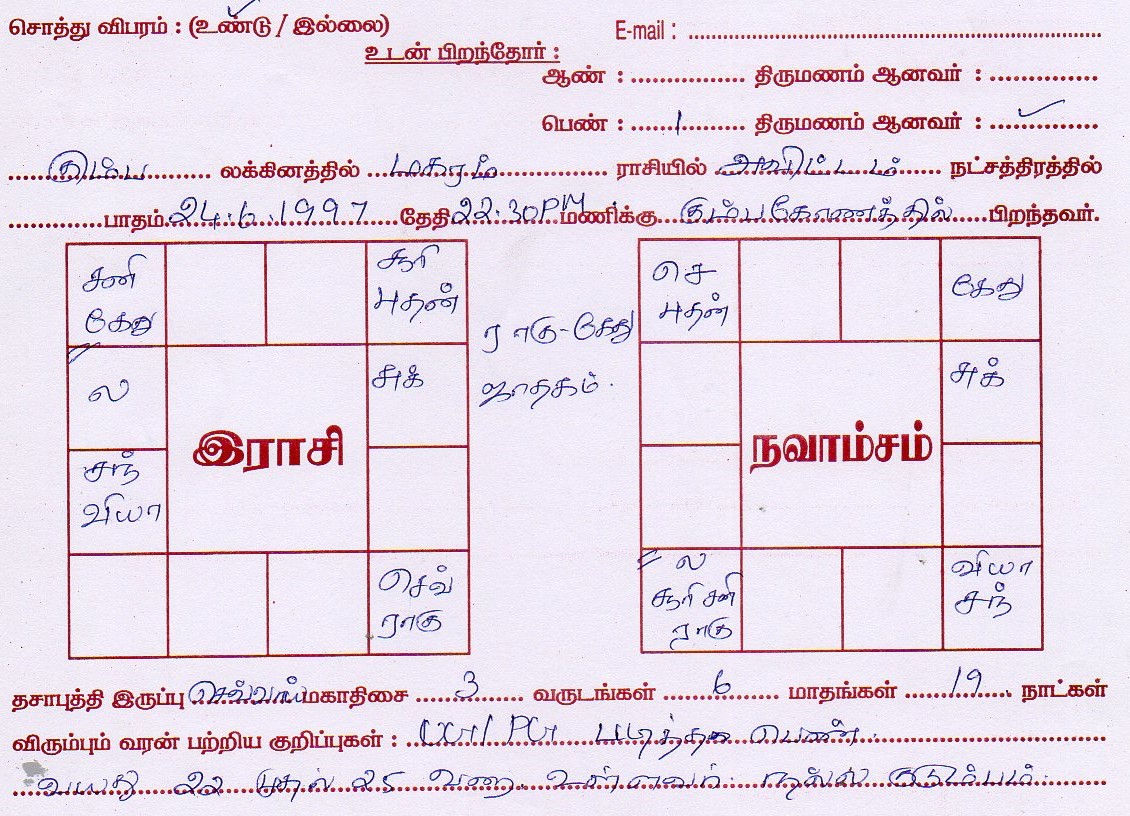 சொத்து விபரம் : (உண்டு / இல்லை)
E-mail : 
உடன் பிறந்தோர் :
ஆண் : ................ திருமணம் ஆனவர் : ..............
பெண் : ......1......... திருமணம் ஆனவர் : ..............
கும்ப லக்கினத்தில் மகரம் ராசியில் அவிட்டம் நட்சத்திரத்தில்
பாதம் 24.6.1997 தேதி 22:30PM மணிக்கு கும்பகோணத்தில் பிறந்தவர்.
சனி கேது
சூரி புதன்
ல
சுக்
சந் வியா
செவ் ராகு
இராசி
ராகு-கேது
ஜாதகம்.
செ புதன்
கேது
சுக்
நவாம்சம்
ல சூரி சனி ராகு
வியா சந்
தசாபுத்தி இருப்பு செவ்வாய் மகாதிசை 3 வருடங்கள் 6 மாதங்கள் 19 நாட்கள்
விரும்பும் வரன் பற்றிய குறிப்புகள் : UG/PG படித்த பெண்.
வயது 22 முதல் 25 வரை உள்ளவர். நல்ல குடும்பம்.